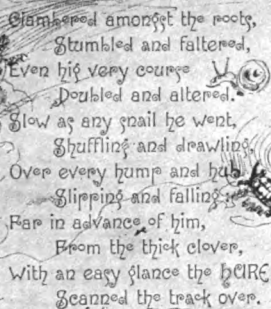 Clambered amongst the roots,
Stumbled and faltered,
Even his very course
Doubled and altered.
Slow as any snail he went,
Shuffling and drawling
Over every hump and hub
Slipping and falling;
Far in advance of him,
From the thick clover,
With an easy glance the HARE
Scanned the track over.